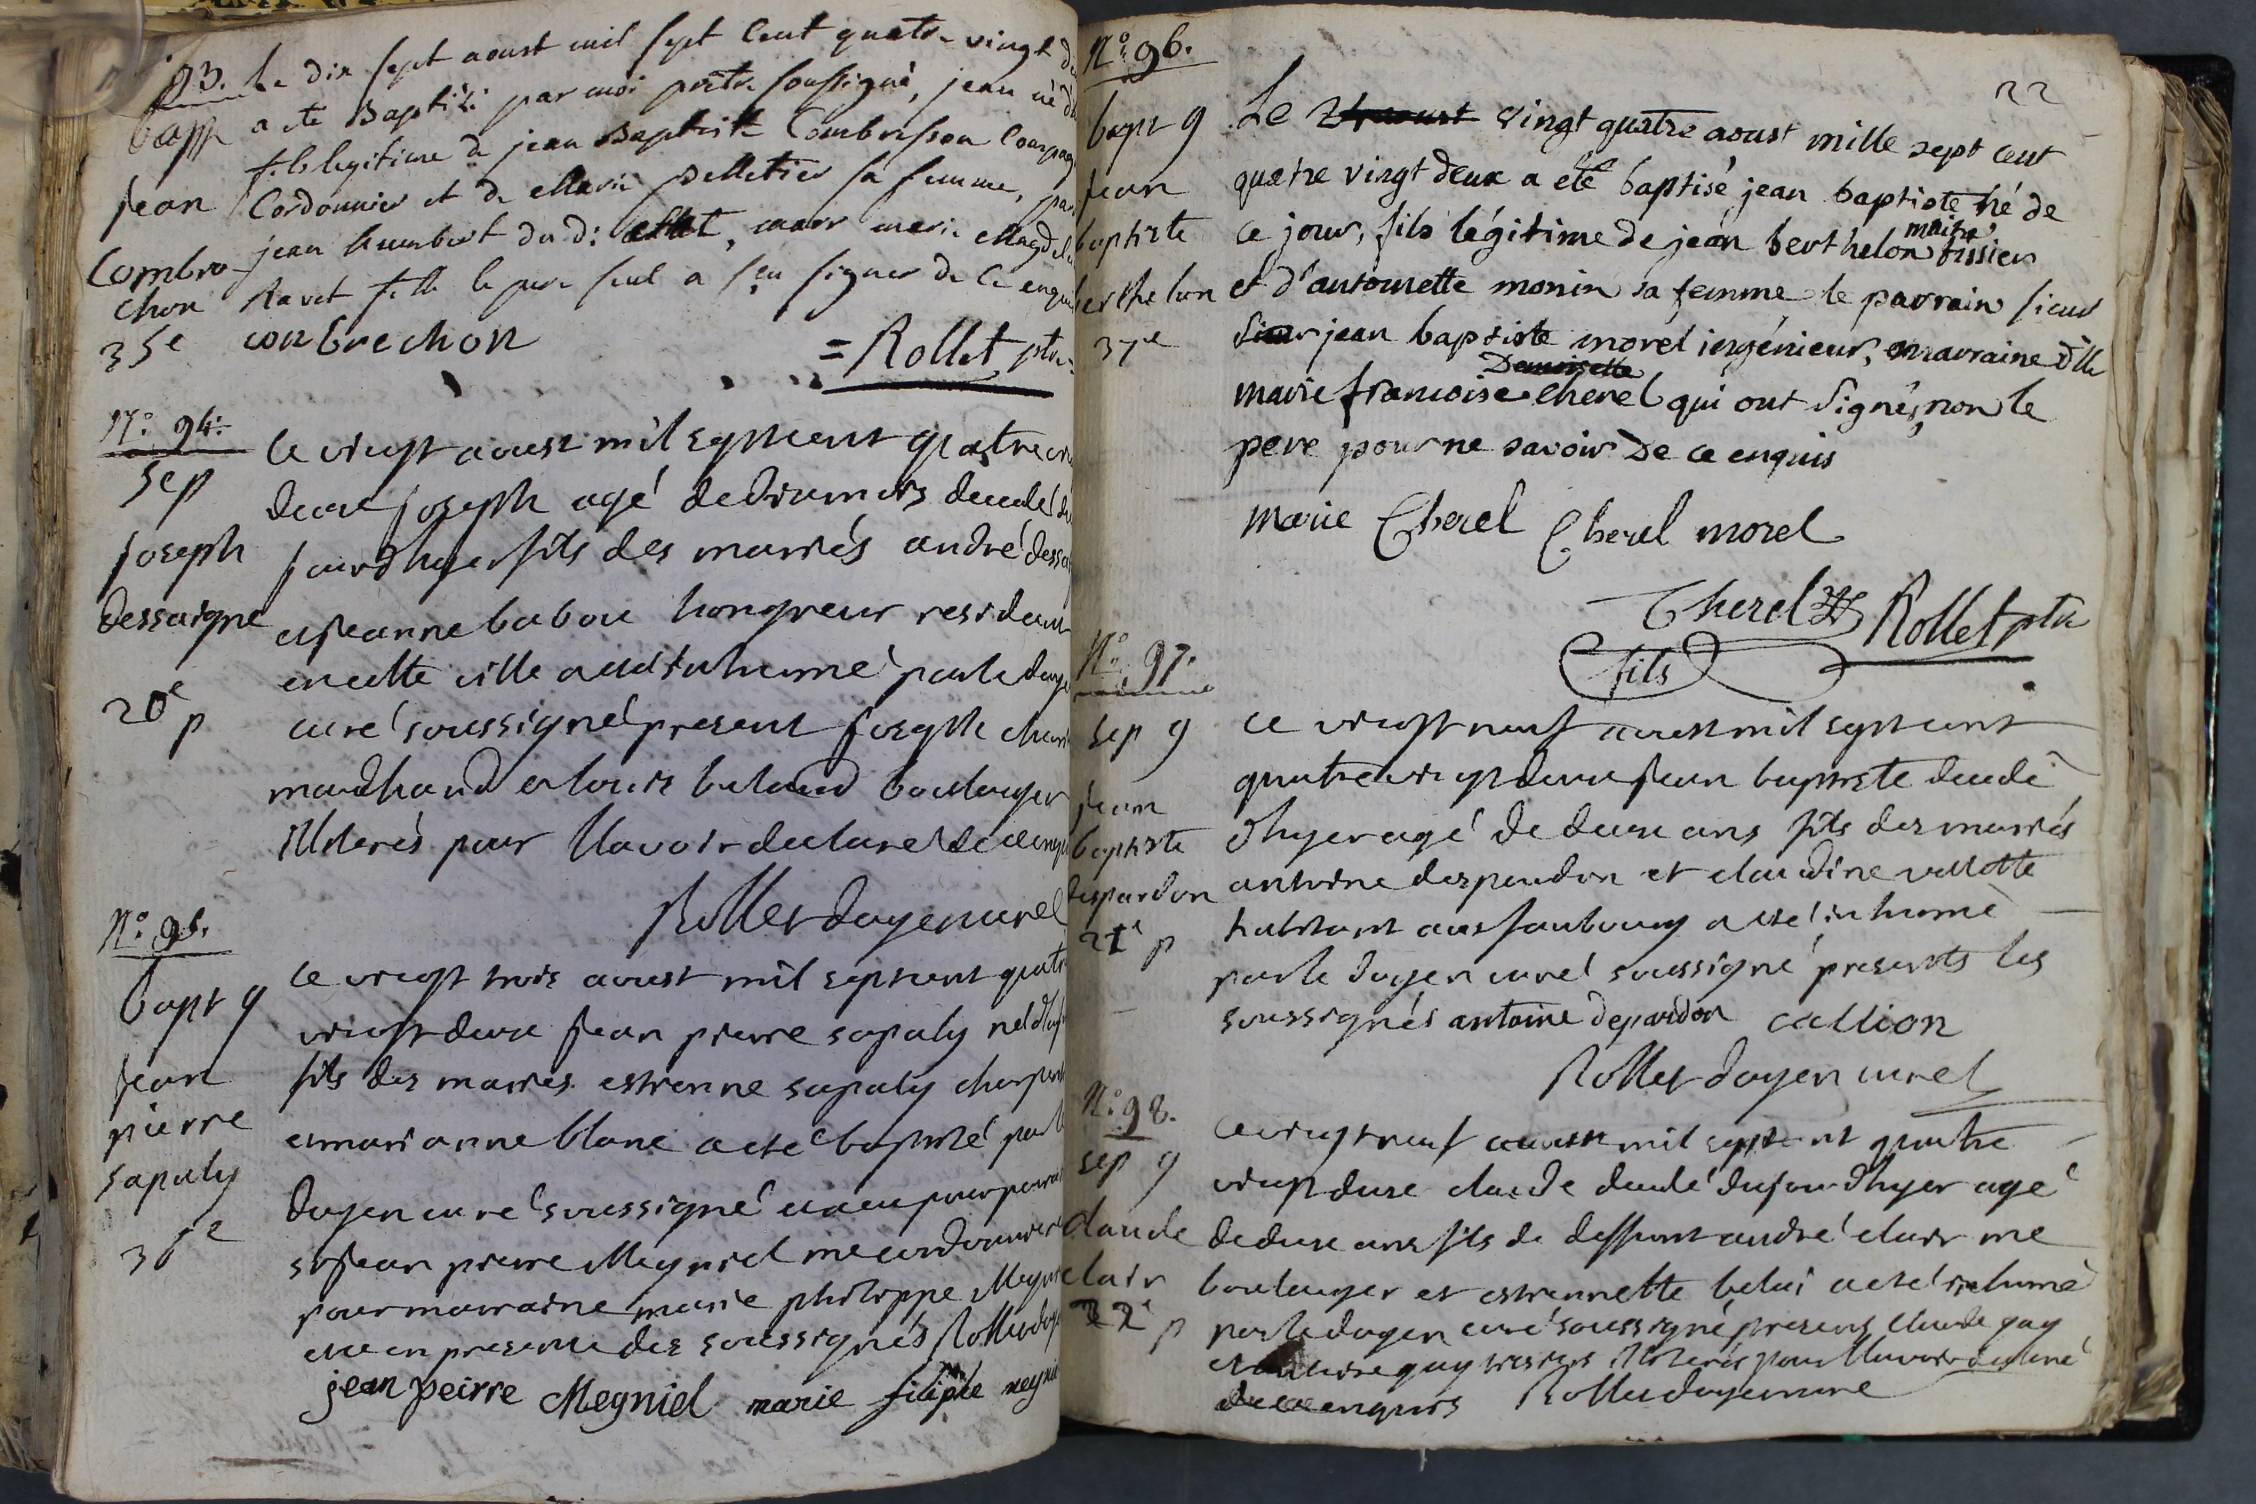 93.
bapt
jean
Combro-
chon
35e
Le dix sept aoust mil sept cent quatre vingt
a ete Baptisé par moi prêtre soussigné, jean né
fils legitime de jean Baptiste Combrisson
Cordonnier et de Marie pelletier sa femme,
jean humbert du di marr marie
Ravet fille le pere seul a sçu signer de ce enquis
conbrechon
= Rollet ptre
N.° 94.
sep
joseph
dessaigne
20e p
Le vingt aoust mil sept cent quatre
deux joseph agé de dixmois decedé
jourd'hyer fils des mariés andré
et jeanne babou hongreur residant
en cette ville a eté inhumé par le doyen
curé soussigné present joseph
marchand et louis boulanger
illiterés pour l'avoir declaré de ce
Rollet doyen curé
N.° 95.
bapt g
jean
pierre
sapaly
36e
Le vingt trois aoust mil sept cent quatre
vingt deux jean pierre sapaly né
fils des mariés estienne sapaly
et marianne blanc a eté baptisé par le
doyen curé soussigné
sr jean pierre Megniel me cordonnier
pour marraine marie philippe
en presence des soussignés Rollet
jean peirre Megniel marie filiple
22
N.° 96.
bapt g
jean
baptiste
berthelon
37e
Le vingt quatre aoust mille sept cent
quatre vingt deux a eté baptisé jean baptiste né de
ce jour, fils légitime de jean berthelon maitre tissier
et d'antoinette monin sa femme le parrain sieur
jean baptiste morel ingénieur, marraine dlle
marie francoise Cherel qui ont signés, non le
pere pour ne savoir de ce enquis
marie Cherel Cherel morel
Cherel Rollet ptre
fils
N.° 97.
sep g
jean
baptiste
despardon
21e p
Le vingt neuf aoust mil sept cent
quatrevingt deux jean baptiste decedé
d'hyer agé de deux ans fils des mariés
antoine despardon et claudine vallotte
habitant aux faubourg a eté inhumé
par le doyen curé soussigné presents les
soussignés antoine depardon callion
Rollet doyen curé
N.° 98.
sep g
claude
clair
22e p
Le vingt neuf aoust mil sept cent quatre
vingt deux claude decedé du jourd'hyer agé
de deux ans fils de deffunt andré clair me
boulanger et estiennette a eté inhumé
par le doyen curé soussigné presens claude gay
et gay illiterés pour l'avoir declaré
de ce enquis Rollet doyen curé